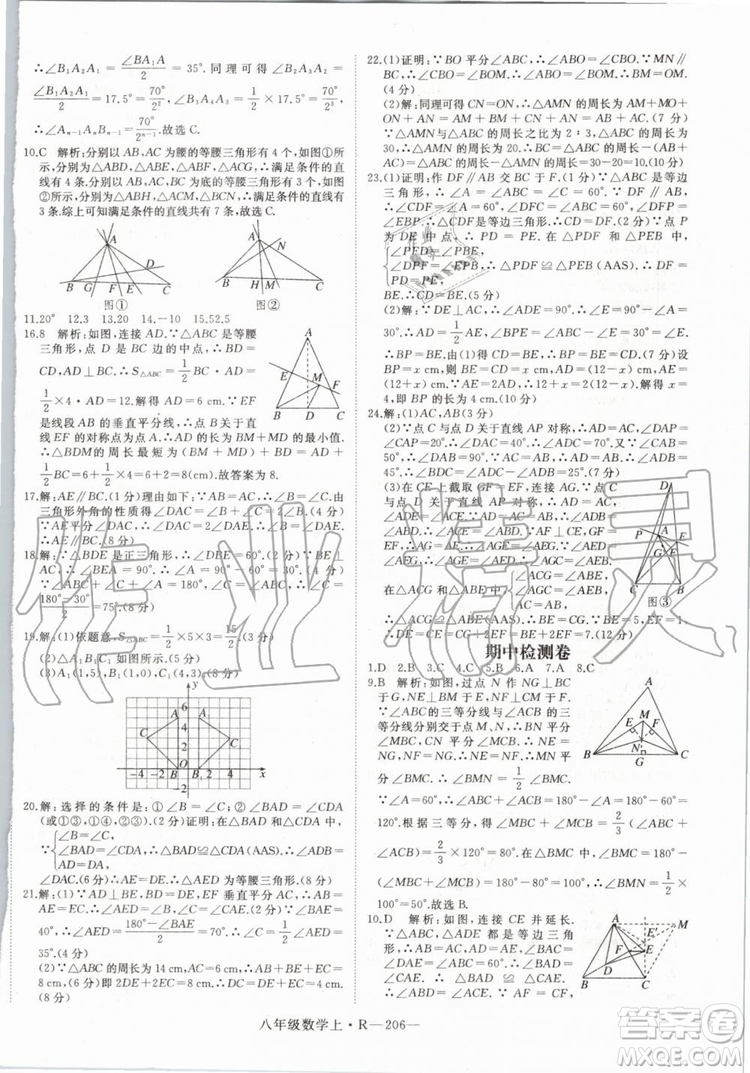 ∴∠B₁A₂A₁ = ∠BA₁A/2 = 35°.同理可得 ∠B₂A₃A₂ =
∠B₁A₂A₁/2 = 17.5° = 70°/2², ∠B₃A₄A₃ = 1/2 × 17.5° = 70°/2³,
∴∠Aₙ₋₁AₙBₙ₋₁ = 70°/2ⁿ⁻¹.故选 C.
10.C 解析:分别以 AB,AC 为腰的等腰三角形有 4 个,如图①所
示,分别为△ABD,△ABE,△ABF,△ACG,∴满足条件的直线
有 4 条;分别以 AB,AC 为底的等腰三角形有 3 个,如图②所
示,分别为△ABH,△ACM,△BCN,∴满足条件的直线有
3 条.综上可知满足条件的直线共有 7 条,故选 C.
A
B G E F C
D
图①
A N
B H M C
图②
11.20° 12.3 13.20 14.-10 15.52.5
16.8 解析:如图,连接 AD.∵△ABC 是等腰
三角形,点 D 是 BC 边的中点,∴BD =
CD,AD⊥BC.∴S△ABC = 1/2 BC·AD = 1/2
× 4·AD = 12,解得 AD = 6 cm.∵EF
是线段 AB 的垂直平分线,∴点 B 关于直
线 EF 的对称点为点 A.∴AD 的长为 BM + MD 的最小值.
∴△BDM 的周长最短为 (BM + MD) + BD = AD +
1/2 BC = 6 + 1/2 × 4 = 6 + 2 = 8(cm).故答案为 8.
A
E M F
B D C
17.解:AE∥BC.(1分)理由如下:∵AB = AC,∴∠B = ∠C.由
三角形外角的性质得∠DAC = ∠B + ∠C = 2∠B.(4分)
∵AE 平分∠DAC,∴∠DAC = 2∠DAE,∴∠B = ∠DAE,
∴AE∥BC.(8分)
18.解:∵△BDE 是正三角形,∴∠DBE = 60°.(2分)∵BE⊥
AC,∴∠BEA = 90°.∴∠A = 90° - 60° = 30°.(4分)
∵AB = AC,∴∠ABC = ∠C,∴∠C =
(180° - 30°)/2 = 75°.(8分)
19.解:(1)依题意,S△ABC = 1/2 × 5 × 3 = 15/2.(2分)
(2)△A₁B₁C₁ 如图所示.(5分)
(3)A₁(1,5),B₁(1,0),C₁(4,3).(8分)
y
6
A
C
B O
-4 -2 2 4 6 x
-2
20.解:选择的条件是:①∠B = ∠C;②∠BAD = ∠CDA
(或①③,①④).(2分)证明:在△BAD 和△CDA 中,
∠B = ∠C,
∠BAD = ∠CDA,
AD = DA,
∴△BAD≌△CDA(AAS),∴∠ADB =
∠DAC.(6分)∴△AED 为等腰三角形.(8分)
21.解:(1)∵AD⊥BE,BD = DE,∴AD 垂直平分 BE,∴AB =
AE.∵EF 垂直平分 AC,∴AE = EC.(2分)∴∠C = ∠CAE.
∵∠BAE = 40°,∴∠AED = (180° - ∠BAE)/2 = 70°.∴∠C =
1/2∠AED = 35°.(4分)
(2)∵△ABC 的周长为 14 cm,AC = 6 cm,∴AB + BE + EC =
8 cm.(6分)即 2DE + 2EC = 8 cm,∴DC = DE + EC = 4 cm.
(8分)
22.(1)证明:∵BO 平分∠ABC,∴∠ABO = ∠CBO.∵MN∥
BC,∴∠BOM = ∠CBO.∴∠ABO = ∠BOM,∴BM = OM.
(4分)
(2)解:同理可得 CN = ON,∴△AMN 的周长为 AM + MO +
ON + AN = AM + BM + CN + AN = AB + AC.(6分)
∵△ABC 与△AMN 的周长之比为 3∶2,AB + AC = AM +
AN + MN,∴(BC + AB + AC)∶(AM + AN + MN) =
(12 + △AMN 的周长)∶△AMN 的周长 = 3∶2,∴△AMN
的周长为 24.(9分)
23.(1)证明:作 DF∥AB 交 BC 于 F.∵△ABC 是等边
三角形,∴∠A = ∠B = ∠C = 60°.∵DF∥AB,
∴∠CDF = ∠A = 60°,∠DFC = ∠ABC = 60°,∠DFP =
∠EBP.∴△CDF 是等边三角形.∴CD = DF.(2分)∵点 P
为 DE 中点,∴PD = PE.在△PDF 和△PEB 中,
∠DPF = ∠EPB,
PD = PE,
∴△PDF≌△PEB(AAS),∴DF =
BE.∴CD = BE.(5分)
(2)解:∵DE⊥AC,∴∠ADE = 90°.∵∠A = 60°,∴∠E =
30°.∴AD = 1/2 AE.∵∠BPE = ∠ABC - ∠E = 30°,∴∠BPE =
∠E.∴BP = BE.(7分)由(1)得 CD = BE,∴BP = BE =
CD.设 BP = x cm,则 BE = CD = x cm,AD = (12 - x) cm,
AE = (12 + x) cm.∵AD = 1/2 AE,∴12 - x = 1/2(12 + x).解得 x =
4,即 BP 的长为 4 cm.(10分)
24.解:(1)AC,AB(3分)
(2)∵点 C 与点 D 关于直线 AP 对称,∴AC = AD,∠DAP =
∠CAP = 20°.∵AB = AC,∠BAC = 90°,∴AD = AB,
∠BAD = 20° + 20° + 90° = 130°.∴∠ADB = 25°.(6分)
(3)在 CE 上截取 GF = EF,连接 AG,
∵点 C 与点 D 关于直线 AP 对称,∴AC = AD,
∠ADE = ∠ACE.∵AB = AC,∴AD = AB.∴
∠ADE = ∠ABD.∴∠ACE =
∠ABE.∵AF⊥CE,GF = EF,∴AG =
AE.∴∠AGF = ∠AEG.∴∠AGC =
∠AEB.
在△ACG 和△ABE 中,
∠ACG = ∠ABE,
∠AGC = ∠AEB,
AG = AE,
∴△ACG≌△ABE(AAS).∴CG = BE = 1.∵点 C 与点 D 关
于直线 AP 对称,∴DE = CE = CG + 2EF = BE + 2EF = 1 +
D
P A
E
F
G
B C
图③
期中检测卷
1.D 2.B 3.C 4.C 5.B 6.A 7.A 8.C
9.B 解析:如图,过点 N 作 NG⊥BC
于 G,NE⊥BM 于 E,NF⊥CM 于 F.
∵∠ABC 的三等分线与∠ACB 的三等
分线分别交于点 M,N,∴BN 平分
∠MBC,CN 平分∠MCB.∴NE =
NG,NF = NG,∴NE = NF,∴MN 平
分∠BMC.∴∠BMN = 1/2∠BMC.
∵∠A = 60°,∴∠ABC + ∠ACB = 180° - ∠A = 180° - 60° =
120°.根据三等分,∠MBC + ∠MCB = 2/3(∠ABC + ∠ACB) =
2/3 × 120° = 80°.在△BMC 中,∠BMC = 180° -
(∠MBC + ∠MCB) = 180° - 80° = 100°.∴∠BMN = 1/2 ×
100° = 50°.故选 B.
A
E M F
N
B G C
10.D 解析:如图,连接 CE 并延长.
∵△ABC,△ADE 都是等边三角形,
A M
F E E′
B D C
八年级数学上·R—206—
答案圈
MXQE.COM
作业精灵